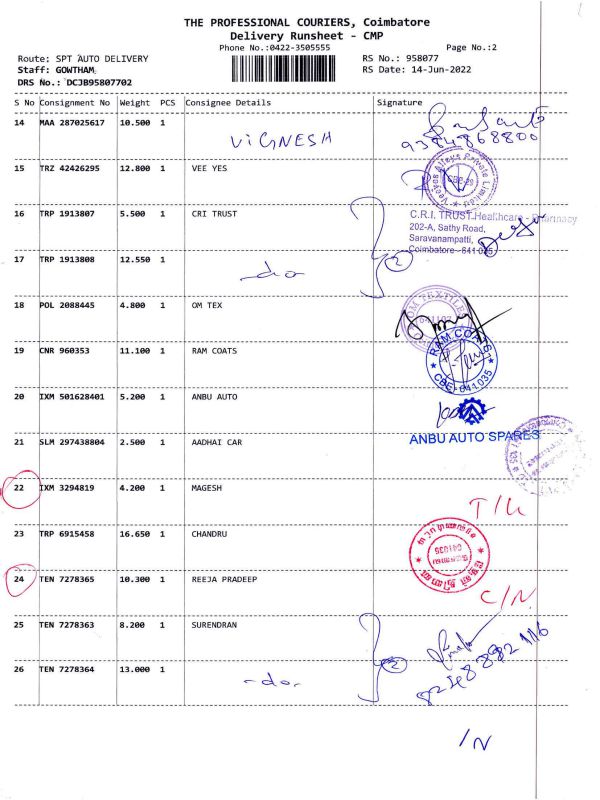 THE PROFESSIONAL COURIERS, Coimbatore
Delivery Runsheet - CMP
Phone No.:0422-3505555 Page No.:2
Route: SPT AUTO DELIVERY RS No.: 958077
Staff: GOWTHAM RS Date: 14-Jun-2022
DRS No.: DCJB95807702
S No Consignment No Weight PCS Consignee Details Signature
14 MAA 287025617 10.500 1 ViGNESH
9384868800
15 TRZ 42426295 12.800 1 VEE YES
Veeyes Alloys Private Limited
16 TRP 1913807 5.500 1 CRI TRUST
C.R.I. TRUST Healthcare - Pharmacy
202-A, Sathy Road,
Saravanampatti,
Coimbatore - 641 035
17 TRP 1913808 12.550 1 -do 2
18 POL 2088445 4.800 1 OM TEX
OM TEXTILE
19 CNR 960353 11.100 1 RAM COATS
RAM COATS
CBE-641035
20 IXM 501628401 5.200 1 ANBU AUTO
ANBU AUTO SPARES
21 SLM 297438804 2.500 1 AADHAI CAR
22 IXM 3294819 4.200 1 MAGESH
23 TRP 6915458 16.650 1 CHANDRU
641035
24 TEN 7278365 10.300 1 REEJA PRADEEP C/N
25 TEN 7278363 8.200 1 SURENDRAN
26 TEN 7278364 13.000 1 -do- 2
/N